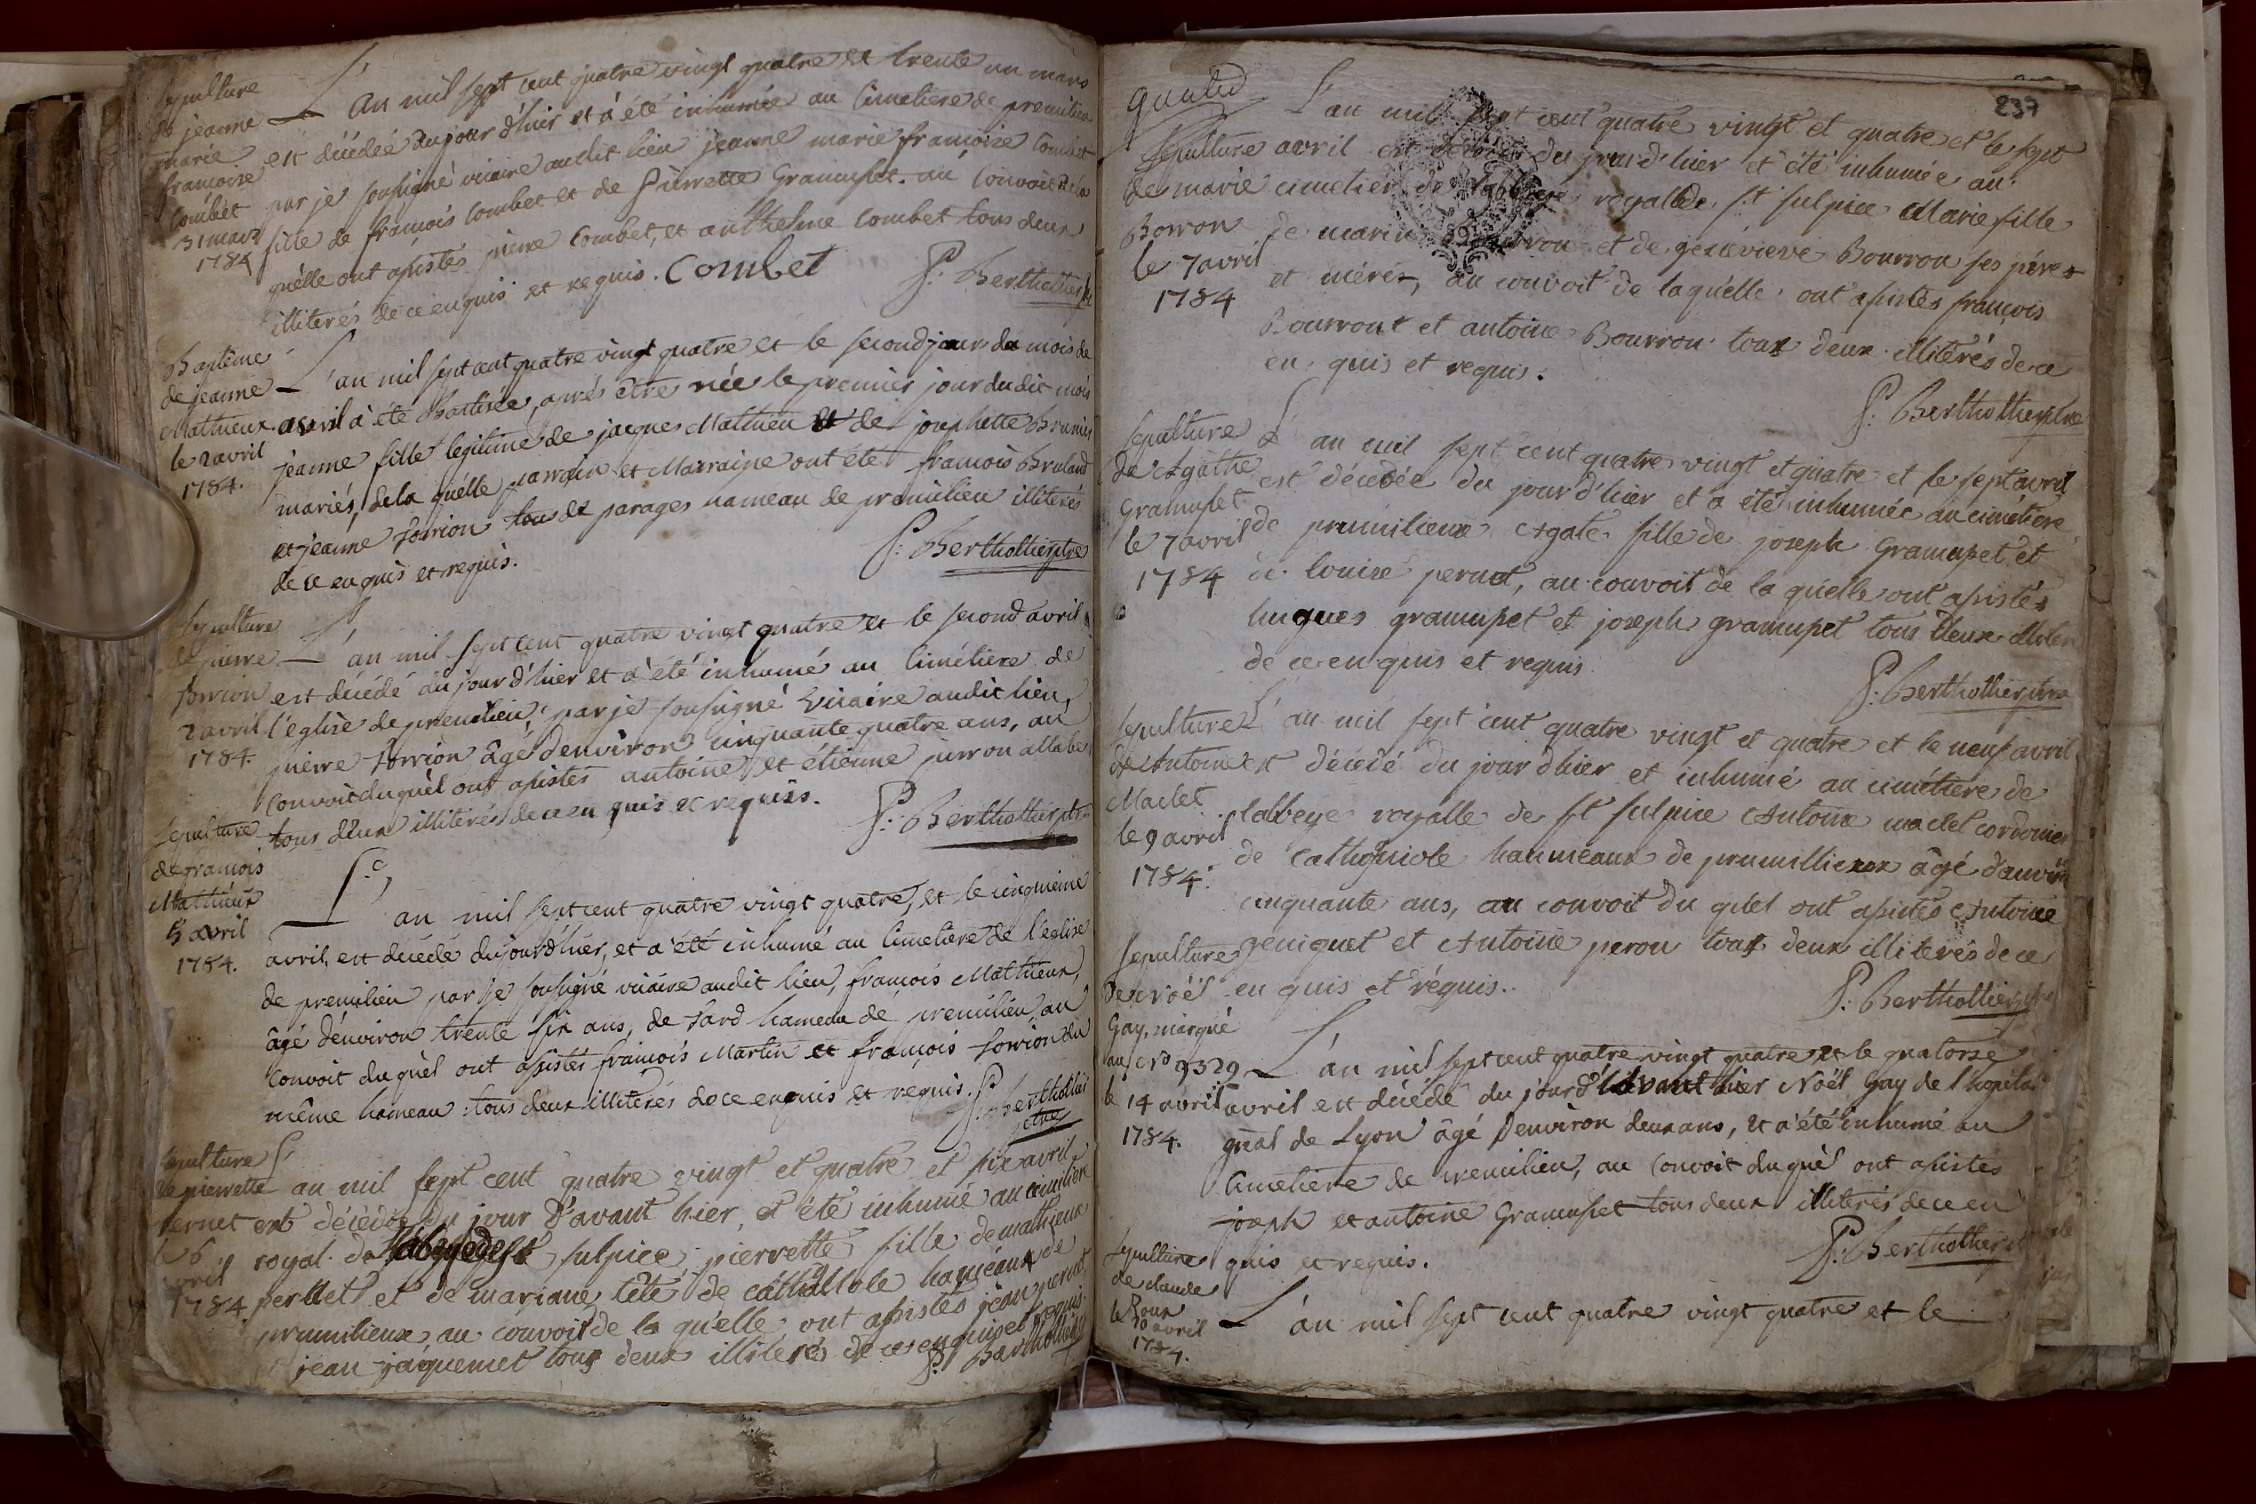 Sepulture
de jeanne
marie
francoise
Combet
31 mars
1784
L'An mil sept cent quatre vingt quatre et trente un mars
est décédée du jour d'hier et a été inhumée au Cimetiere de premilieu
par je soussigné vicaire audit lieu jeanne marie francoise Combet
fille de francois Combet et de Pierrette Gramupet. au Convoit de la
quélle ont assistés pierre Combet, et anthelme Combet tous deux
illiterés de ce enquis et requis. Combet
P. Bertholtier ptre
Baptême
de jeanne
Mathieux
le 2 avril
1784.
L'an mil sept cent quatre vingt quatre et le second jour du mois de
avril a été Baptisée, aprés être née le premier jour du dit mois
jeanne fille legitime de jacques Mathieu et de josephette Brunier
mariés, de la quélle parrain et Marraine ont été francois Bruland
et jeanne Forrion tous de parages hameau de premilieu illiterés
de ce enquis et requis.
P. Bertholtier ptre
Sepulture
de pierre
forrion
2 avril
1784.
L'an mil sept cent quatre vingt quatre et le second avril
est décédé du jour d'hier et a été inhumé au Cimétiere de
l'eglise de premilieu, par je soussigné Vicaire audit lieu,
pierre forrion âgé denviron cinquante quatre ans, au
Convoit duquél ont assistés antoine et étienne purron
tous deux illiterés de ce en quis et requis.
P. Bertholtier ptre
Sepulture
de francois
Mathieux
5 avril
1784.
L'an mil sept cent quatre vingt quatre, et le cinquieme
avril, est décédé du jour d'hier, et a été inhumé au Cimetiere de l'eglise
de premilieu par je soussigné vicaire audit lieu, francois Mathieux,
âgé d'environ trente six ans, de Fard hameau de premilieu, au
Convoit duquél ont assistés francois Martin et francois forrion du
même hameau tous deux illiterés de ce enquis et requis.
P. Bertholtier
ptre
Sepulture
de pierrette
pernet
le 6
avril
1784.
L'an mil sept cent quatre vingt et quatre et six avril
est décédée du jour D'avant hier, et été inhumé au cimétiere
royal de l'abeyedest sulpice pierrette fille de mathieux
pernet et de mariane tété de cathoniole hameaux de
prumilieux au convoit de la quélle ont assistés jean pernet
jean jaquemet tous deux illiterés de ce enquis et requis.
P. Bertholtier
237
Sepulture
de marie
Borron
le 7 avril
1784
L'an mil sept cent quatre vingt et quatre et le sept
avril est décédée du jour d'hier et été inhumée au
cimetier de l'abbeye royalle de st sulpice Marie fille
de marin Bourron et de genevieve Bourron ses péres
et méres, au convoit de laquélle ont assistés francois
Bourront et antoine Bourron tous deux illiterés de ce
en quis et requis.
P. Bertholtier ptre
Sepulture
de Agathe
Gramupet
le 7 avril
1784
L'an mil sept cent quatre vingt et quatre et le sept avril
est décédée du jour d'hier et a été inhumée au cimétiere
de prumilieux Agate fille de joseph Gramupet et
de louise pernot, au convoit de la quelle ont assistés
hugues gramupet et joseph gramupet tous deux illiter
de ce en quis et requis
P. Bertholtier ptre
Sepulture
de Antoine
Maclet
le 9 avril
1784.
L'an mil sept cent quatre vingt et quatre et le neuf avril
est décédé du jour d'hier et inhumé au cimétiere de
l'abbeye royalle de st sulpice Antoine maclet cordonier
de Cathoniole hammeaux de prumillieux âgé d'anviron
cinquante ans, au convoit du quél ont assistés Antoine
geniquet et Antoine peron tous deux illiterés de ce
en quis et réquis.
P. Bertholtier ptre
Sepulture
De Noël
Gay, marqué
au No 9329
le 14 avril
1784.
L'an mil sept cent quatre vingt quatre et le quatorze
avril est décédé du jour d'avant hier Noël Gay de l'hopital
gñal de Lyon âgé Denviron deux ans, et a été inhumé au
Cimetiere de premilieu, au Convoit duquél ont assistés
joseph et antoine Gramupet tous deux illiterés de ce en
quis et requis.
P. Bertholtier
Sepulture
de claude
Roux
le 30 avril
1784.
L'an mil sept cent quatre vingt quatre et le